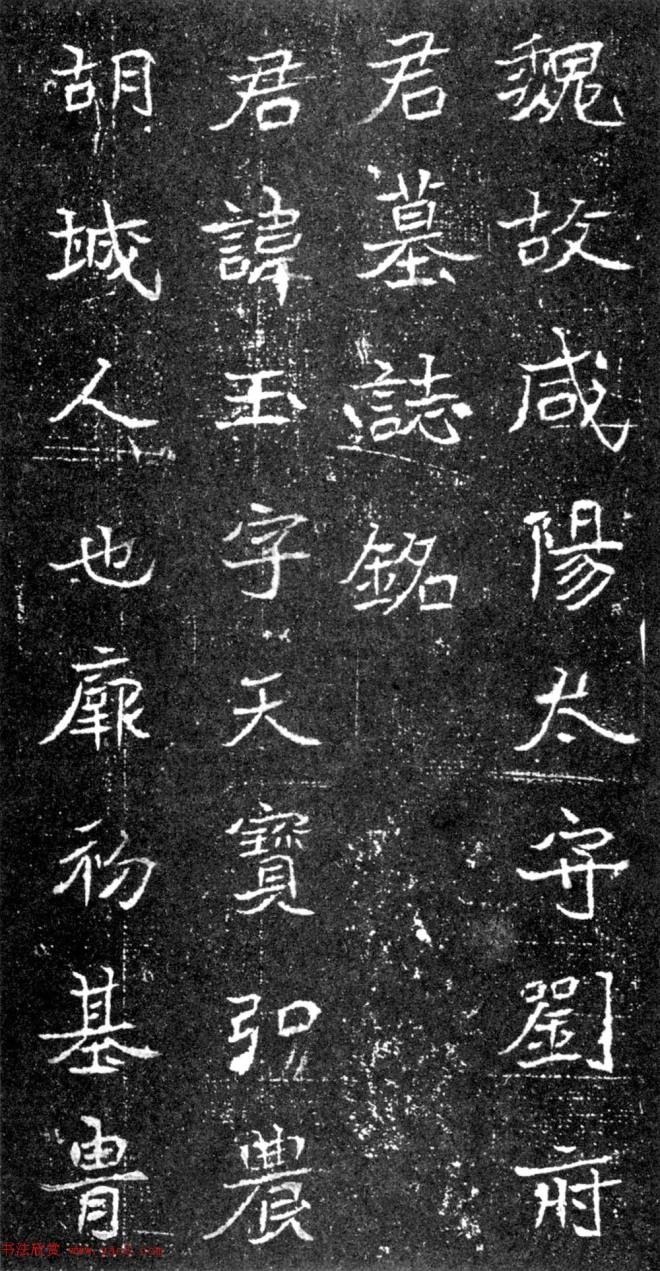 魏故咸陽太守劉府
君墓誌銘
君諱玉字天寶弘農
胡城人也厥初基胄
书法欣赏